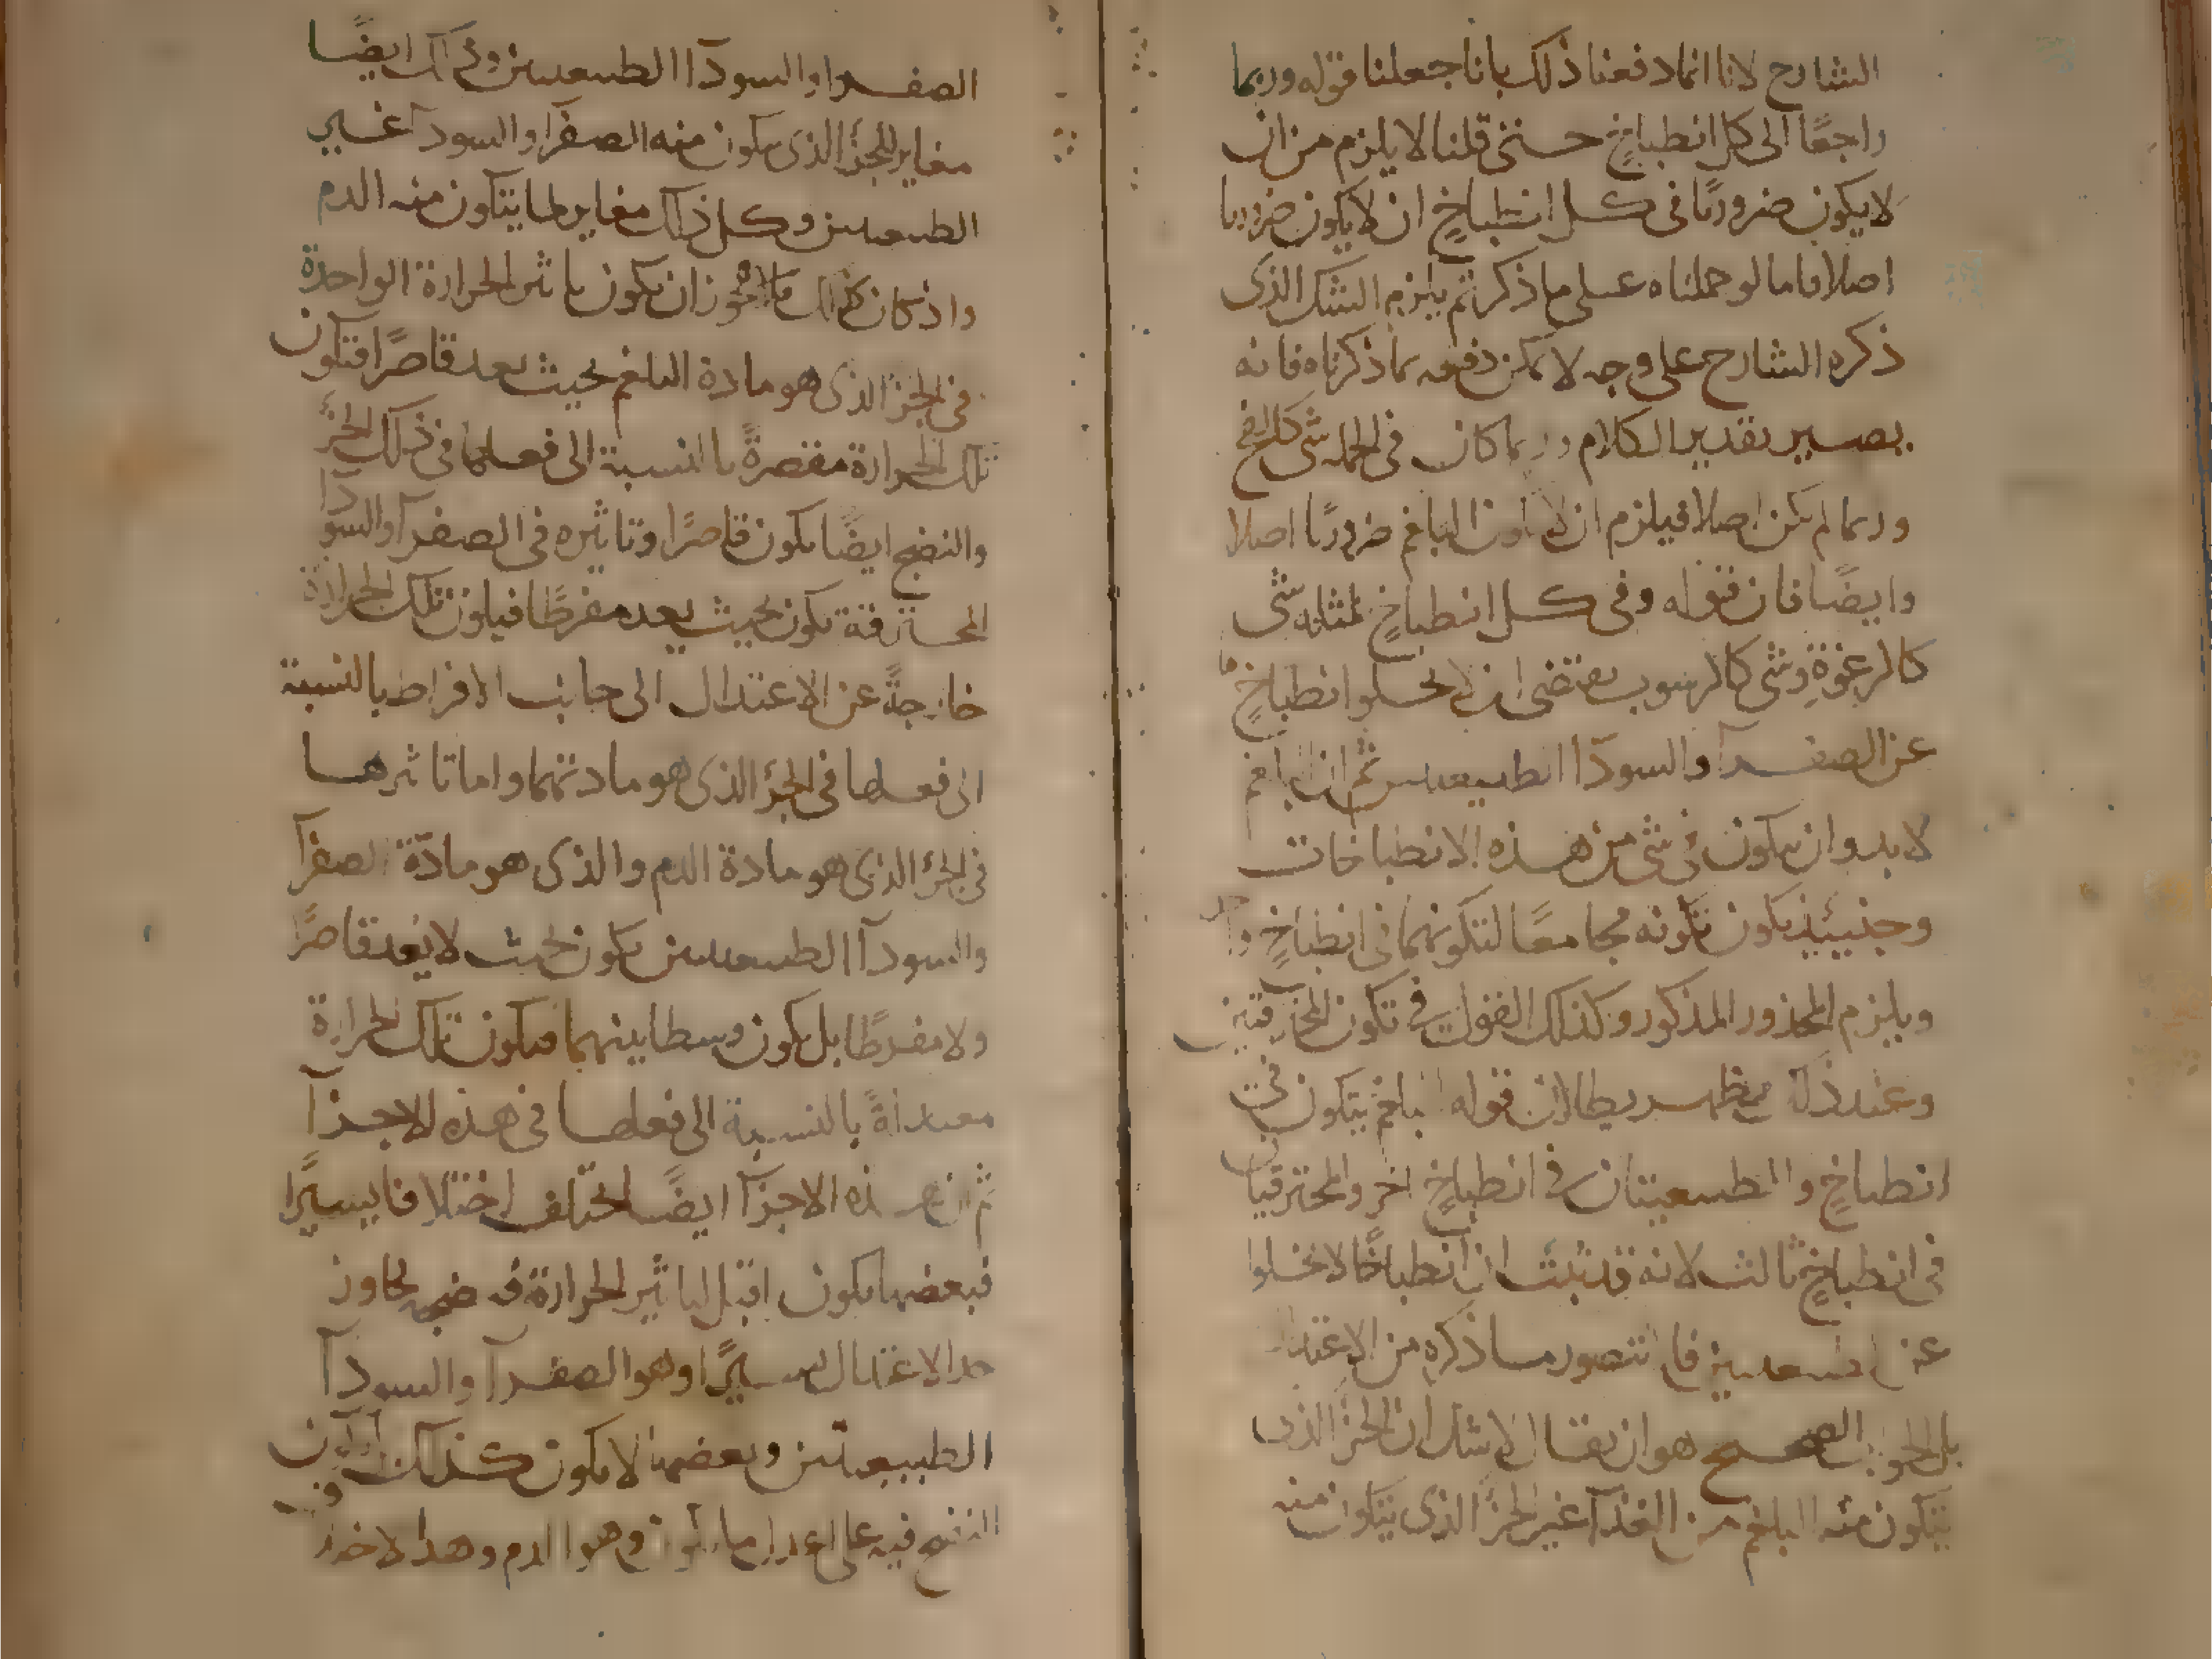 الشارح لانا انما دفعنا ذلك بانا جعلنا قوله وربما
راجعًا الى كل انطباخٍ حتى قلنا لا يلزم من ان
لا يكون ضروريًا فى كل انطباخٍ ان لا يكون ضروريا
اصلا فاما لو حملناه على ما ذكر ثم يلزم الشك الذى
ذكره الشارح على وجه لا يمكن دفعه بما ذكرناه فانه
يصير تقدير الكلام وربما كان فى الجملة شى كالفج
وربما لم يكن اصلا فيلزم ان لا يكون البلغم ضروريًا اصلا
وايضًا فان قوله وفى كل انطباخٍ لمثله شى
كالرغوةِ وشى كالرسوب يقتضى ان لا يخلو انطباخٍ ما
عن الصفرآ والسودآ الطبيعيين ثم ان البلغم
لا بد وان يكون فى شى من هذه الانطباخات
وحينيئذ يكون تكونه مجامعًا لتكونهما فى انطباخٍ واحد
ويلزم المحذور المذكور وكذلك القول فى تكون المحترقتين
وعند ذلك يظهر بطلان قوله البلغم يتكون فى
انطباخٍ والطبيعيتان فى انطباخٍ اخر والمحترقتان
فى انطباخٍ ثالث لانه قد ثبت ان انطباخًا لا يخلوا
عن الطبيعيين فلا يتصور ما ذكره من الاعتذار
بل الجواب الصحيح هو ان يقال لا شك ان الجزأ الذى
يتكون منه البلغم من الغذآ غير الجزأ الذى يتكون منه
الصفرا والسودآ الطبيعيين وذلك ايضًا
مغاير للجزأ الذى يكون منه الصفرآ والسودآ غير
الطبيعيين وكل ذلك مغاير لما يتكون منه الدم
واذ كان كذلك فلا يجوز ان يكون تاثير الحرارة الواحدة
فى الجزأ الذى هو مادة البلغم بحيث يعد قاصرًا فتكون
تلك الحرارة مقصرةً بالنسبة الى فعلها فى ذلك الجزأ
والنضج ايضًا يكون قاصرًا وتاثيره فى الصفرآ والسودآ
المحترقة يكون بحيث يعد مفرطًا فيكون تلك الحرارة
خارجةً عن الاعتدال الى جانب الافراط بالنسبة
الى فعلها فى الجزأ الذى هو مادتهما واما تاثيرها
فى الجزأ الذى هو مادة الدم والذى هو مادّة الصفرآ
والسودآ الطبيعيين يكون بحيث لا يُعد قاصرًا
ولا مفرطًا بل يكون وسطا بينهما فيكون تلك الحرارة
معتدلةً بالنسبة الى فعلها فى هذه الاجزآ
ثم ان هذه الاجزآ ايضًا تختلف اختلافا يسيرًا
فبعضها يكون اقبل لتاثير الحرارة فيه يجاوز
حد الاعتدال يسيرًا وهو الصفرآ والسودآ
الطبيعيتين وبعضها لا يكون كذلك
النضج فيه على اعدل ما يكون وهو الدم وهذا